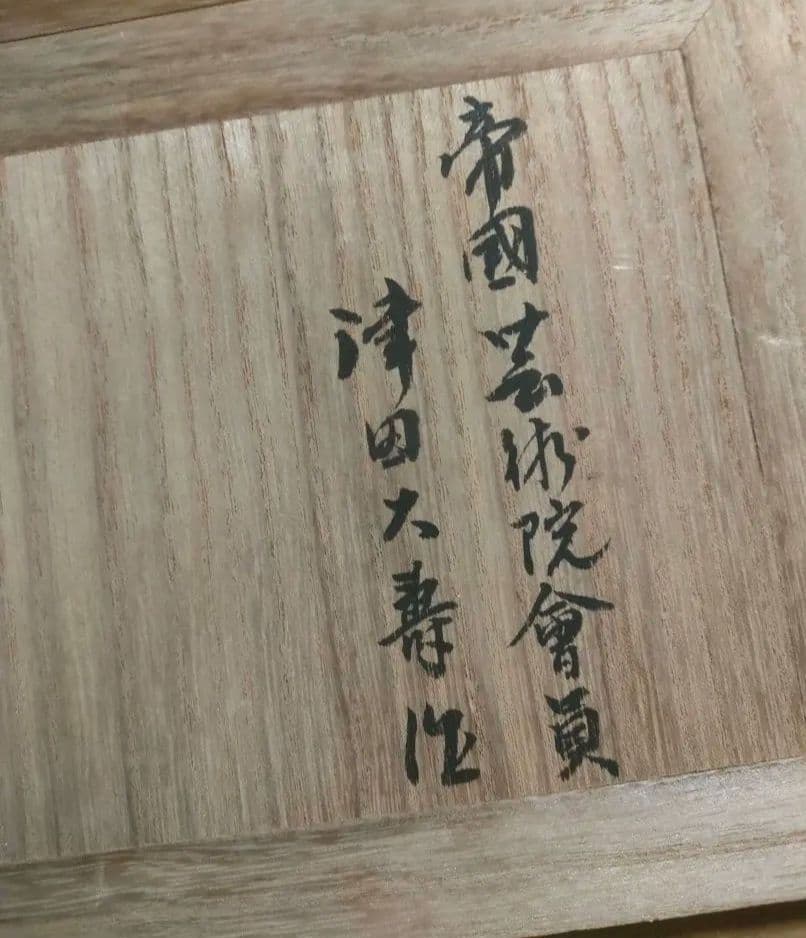 帝國芸術院會員
津田大壽作